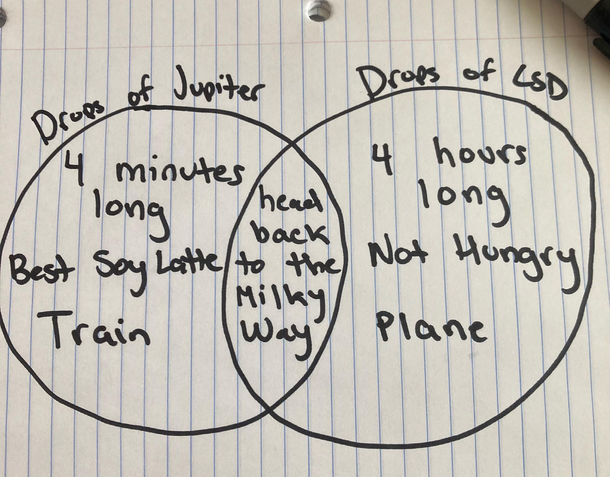 Drops of Jupiter
4 minutes
long
Best Soy Latte
Train
head
back
to the
Milky
Way
Drops of LSD
4 hours
long
Not Hungry
Plane